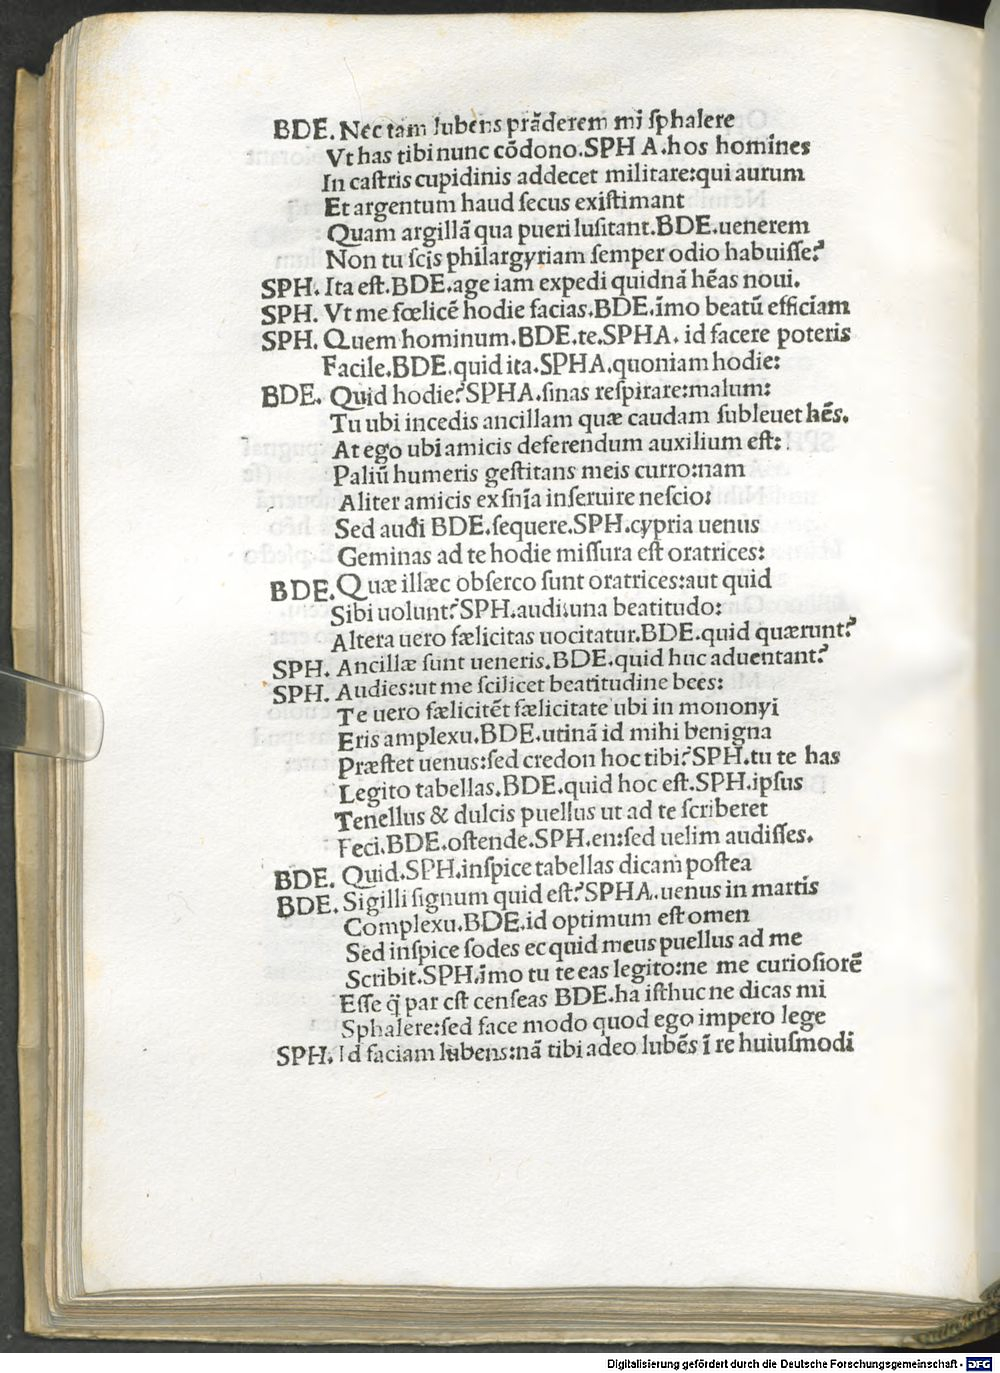 BDE. Nec tam lubens prāderem mi ſphalere
Vt has tibi nunc cōdono.SPH A.hos homines
In caſtris cupidinis addecet militare:qui aurum
Et argentum haud ſecus exiſtimant
Quam argillā qua pueri luſitant.BDE.uenerem
Non tu ſcis philargyriam ſemper odio habuiſſe?
SPH. Ita eſt.BDE.age iam expedi quidnā hēas noui.
SPH. Vt me fœlicē hodie facias.BDE.īmo beatū efficiam
SPH. Quem hominum.BDE.te.SPHA. id facere poteris
Facile.BDE.quid ita.SPHA.quoniam hodie:
BDE. Quid hodie?SPHA.ſinas reſpirare:malum:
Tu ubi incedis ancillam quæ caudam ſubleuet hēs.
At ego ubi amicis deferendum auxilium eſt:
Paliū humeris geſtitans meis curro:nam
Aliter amicis ex ſnīa inſeruire neſcio:
Sed audi BDE.ſequere.SPH.cypria uenus
Geminas ad te hodie miſſura eſt oratrices:
BDE. Quæ illæc obſerco ſunt oratrices:aut quid
Sibi uolunt?SPH.audi:una beatitudo:
Altera uero fælicitas uocitatur.BDE.quid quærunt?
SPH. Ancillæ ſunt ueneris.BDE.quid huc aduentant?
SPH. Audies:ut me ſcilicet beatitudine bees:
Te uero fælicitēt fælicitate ubi in mononyi
Eris amplexu.BDE.utinā id mihi benigna
Præſtet uenus:ſed credon hoc tibi?SPH.tu te has
Legito tabellas.BDE.quid hoc eſt.SPH.ipſus
Tenellus & dulcis puellus ut ad te ſcriberet
Feci.BDE.oſtende.SPH.en:ſed uelim audiſſes.
BDE. Quid.SPH.inſpice tabellas dicam poſtea
BDE. Sigilli ſignum quid eſt?SPHA.uenus in martis
Complexu.BDE.id optimum eſt omen
Sed inſpice ſodes ec quid meus puellus ad me
Scribit.SPH.īmo tu te eas legito:ne me curioſiorē
Eſſe q̄ par eſt cenſeas BDE.ha iſthuc ne dicas mi
Sphalere:ſed face modo quod ego impero lege
SPH. Id faciam lubens:nā tibi adeo lubēs ī re huiuſmodi
Digitalisierung gefördert durch die Deutsche Forschungsgemeinschaft - DFG